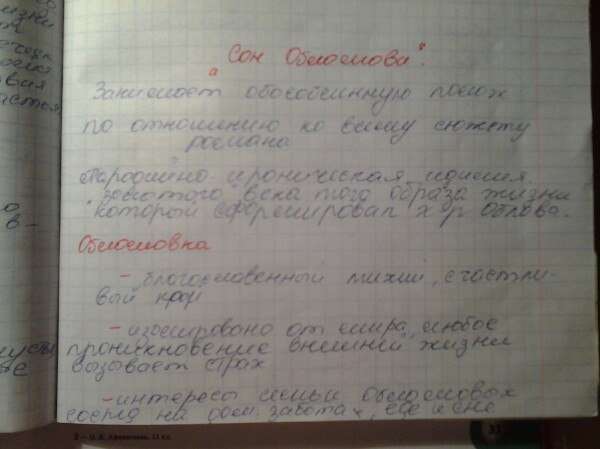 "Сон Обломова".
Занимает обособленную полож
по отношению ко всему сюжету
романа
Пародийно-ироническая идиллия
"золотого" века того образа жизни
который сформировал х-р Облова.
Обломовка
- "благословенный тихий, счастли-
вый" край
- изолировано от мира, любое
проникновение внешней жизни
вызывает страх
- интересы семьи Обломовых
сосред на дом. заботах, еде и сне